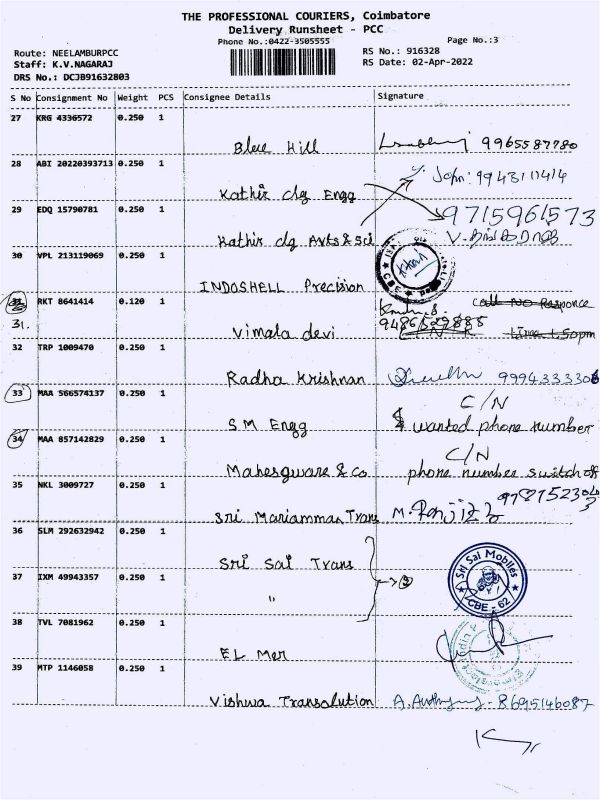 THE PROFESSIONAL COURIERS, Coimbatore
Delivery Runsheet - PCC
Phone No.:0422-3505555 Page No.:3
Route: NEELAMBURPCC RS No.: 916328
Staff: K.V.NAGARAJ RS Date: 02-Apr-2022
DRS No.: DCJB91632803
S No Consignment No Weight PCS Consignee Details Signature
27 KRG 4336572 0.250 1
Blue Hill 9965587780
28 ABI 20220393713 0.250 1
Kathir clg Engg John: 9943111414
29 EDQ 15790781 0.250 1 9715961573
Kathir clg Arts & Sci
30 VPL 213119069 0.250 1
INDOSHELL Precision
31 RKT 8641414 0.120 1 Call No Responce
31. Vimala devi 9486529885 time 1.50pm
32 TRP 1009470 0.250 1
Radha Krishnan 9994333306
33 MAA 566574137 0.250 1 C/N
SM Engg wanted phone number
34 MAA 857142829 0.250 1 C/N
Maheswari & Co phone number switch off
35 NKL 3009727 0.250 1
Sri Mariamman Trans
36 SLM 292632942 0.250 1
Sri Sai Trans
Sri Sai Mobiles
CBE - 62
37 IXM 49943357 0.250 1
"
38 TVL 7081962 0.250 1
EL Mer
39 MTP 1146058 0.250 1
Vishwa Transolution 8695146087